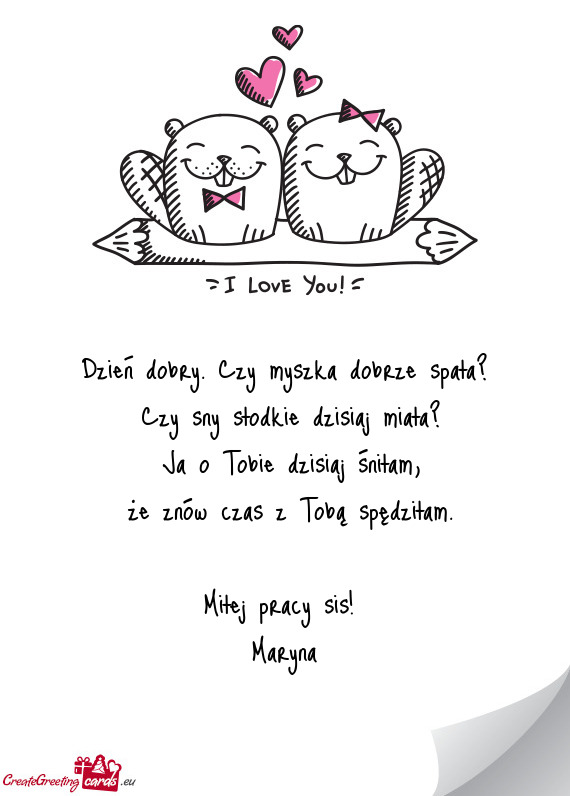 I Love You!
Dzień dobry. Czy myszka dobrze spała?
Czy sny słodkie dzisiaj miała?
Ja o Tobie dzisiaj śniłam,
że znów czas z Tobą spędziłam.
Miłej pracy sis!
Maryna
CreateGreeting cards .eu